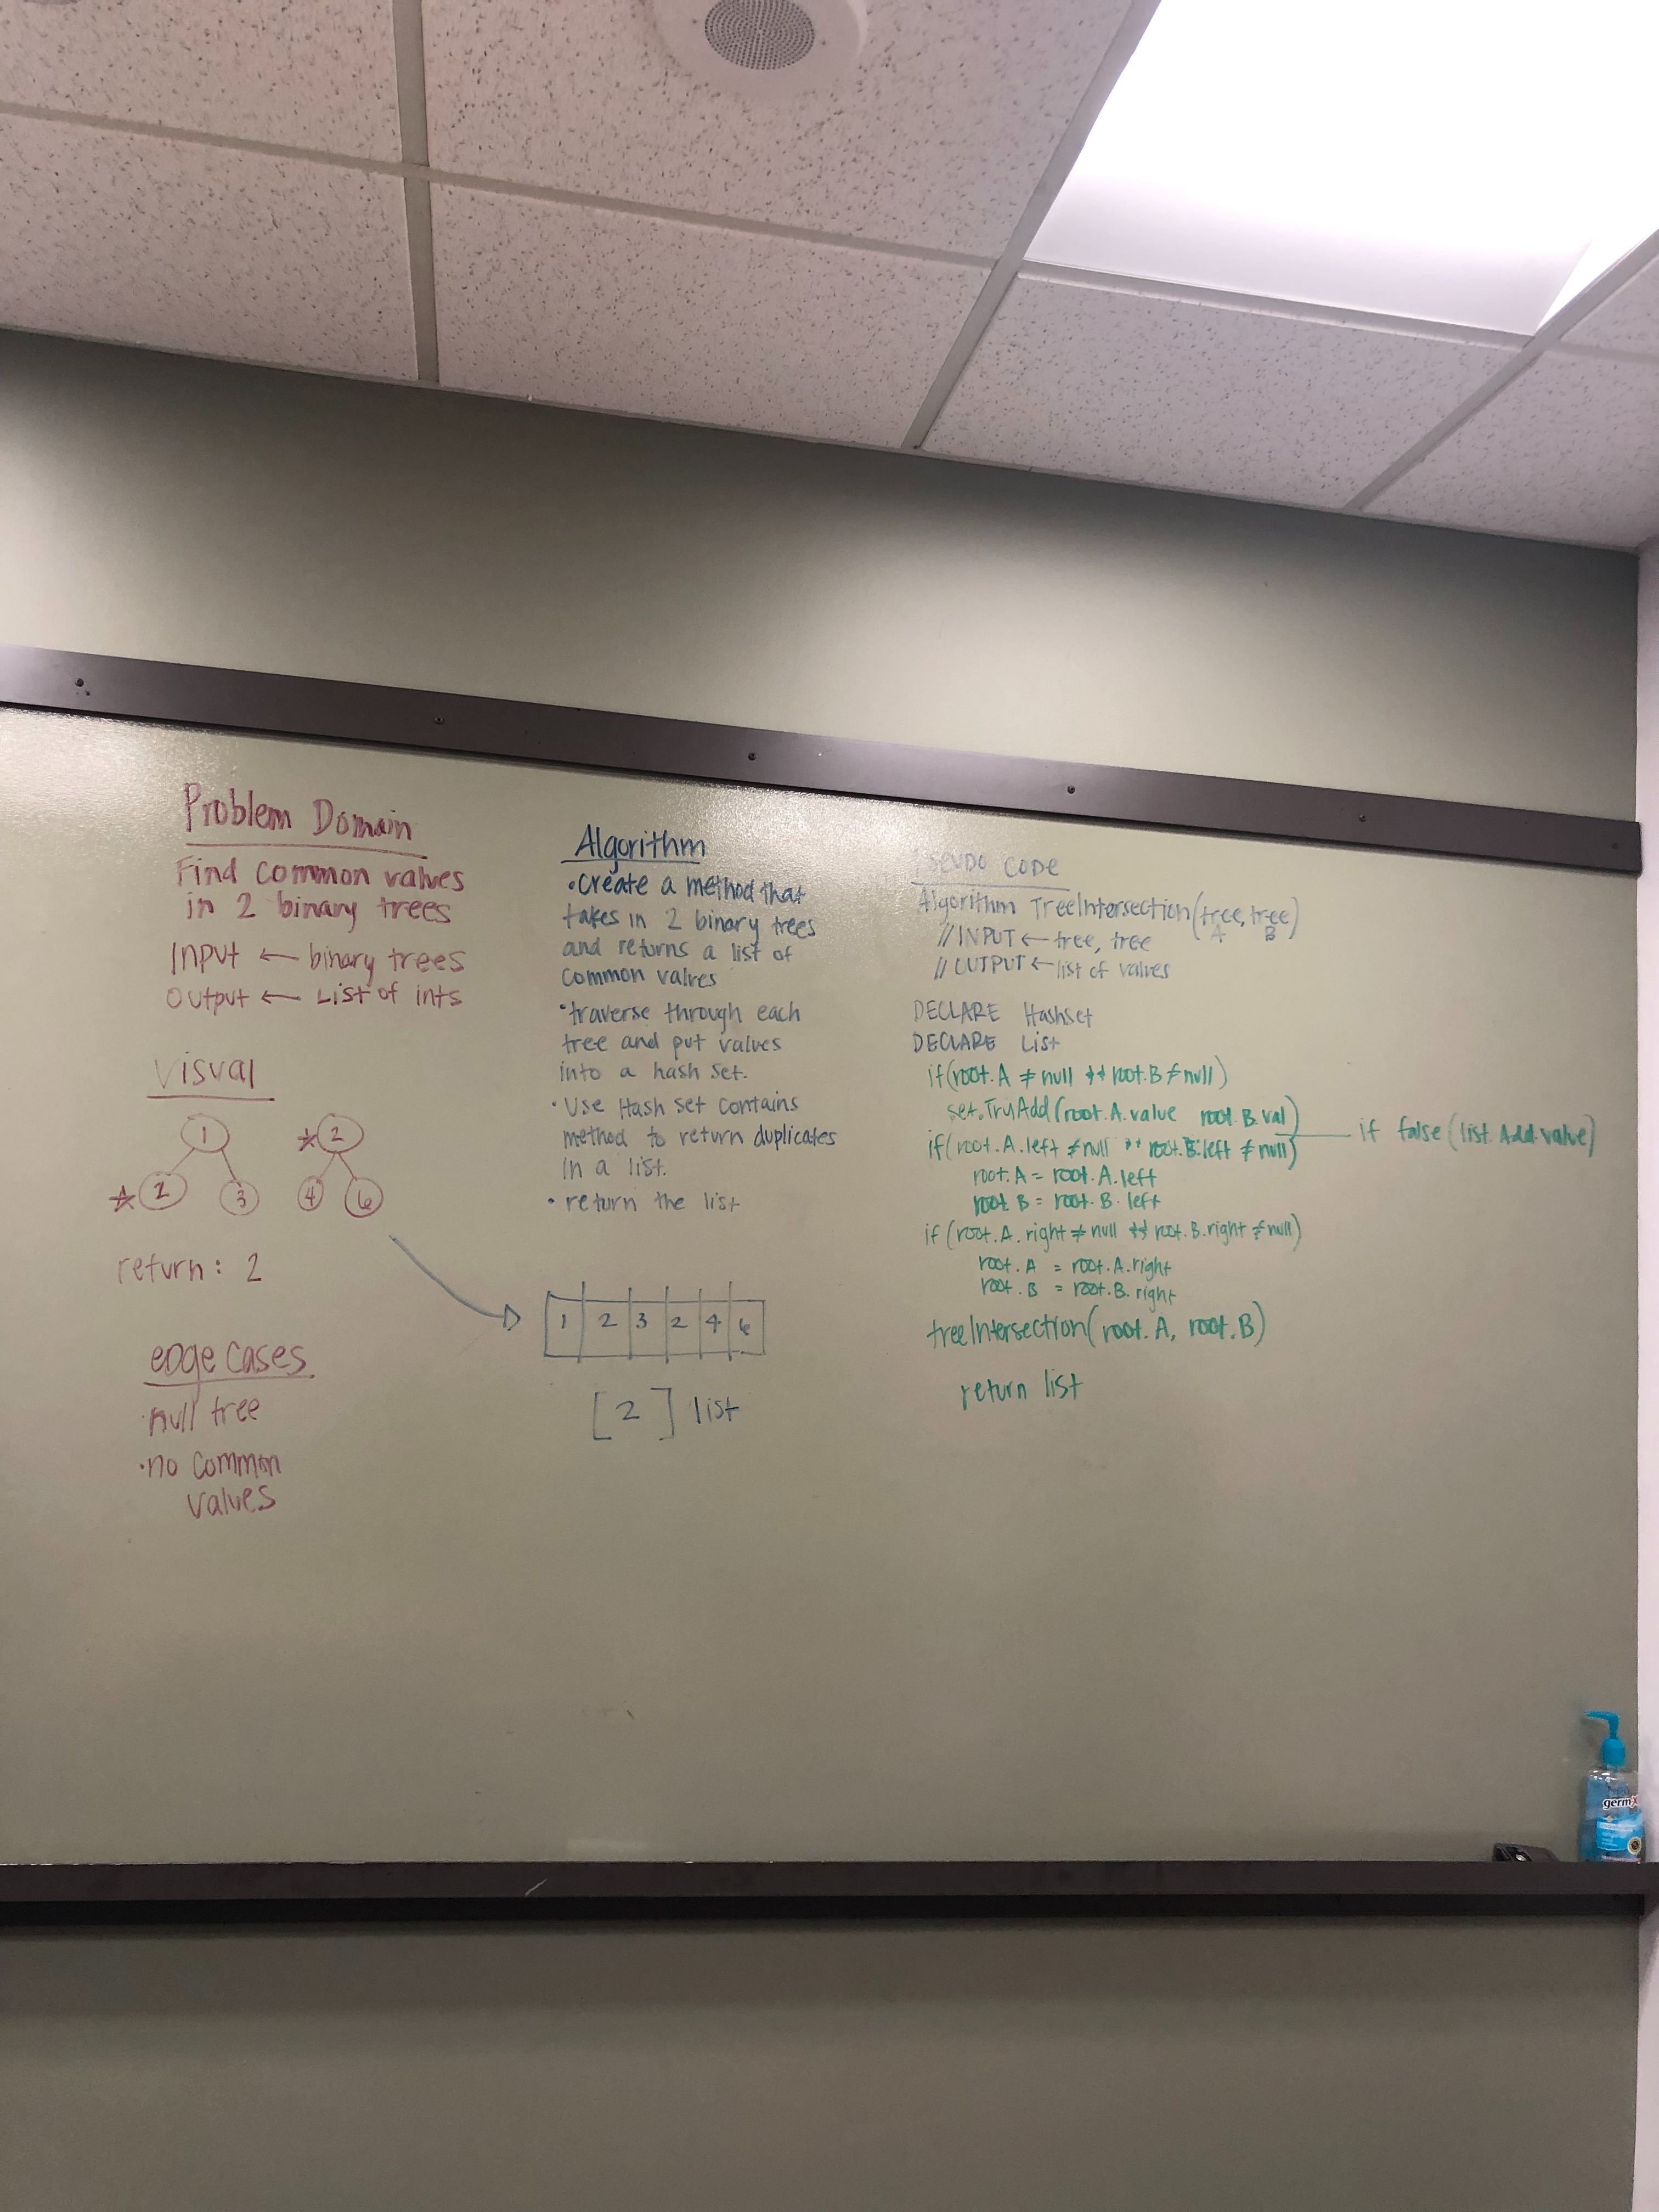 Problem Domain
Find common values
in 2 binary trees
INPUT ← binary trees
Output ← List of ints
Visual
1
2
3
2
4
6
return: 2
edge cases
null tree
·no common
values
Algorithm
·create a method that
takes in 2 binary trees
and returns a list of
common values
·traverse through each
tree and put values
into a hash set.
·Use Hash set contains
method to return duplicates
in a list.
·return the list
1 2 3 2 4 6
[2] list
Pseudo Code
Algorithm TreeIntersection(tree, tree)
A B
// INPUT ← tree, tree
// OUTPUT ← list of values
DECLARE Hashset
DECLARE List
if(root.A ≠ null && root.B ≠ null)
set.TryAdd(root.A.value root.B.val)
if false (list.Add.value)
if(root.A.left ≠ null && root.B.left ≠ null)
root.A = root.A.left
root.B = root.B.left
if(root.A.right ≠ null && root.B.right ≠ null)
root.A = root.A.right
root.B = root.B.right
treeIntersection(root.A, root.B)
return list
germX